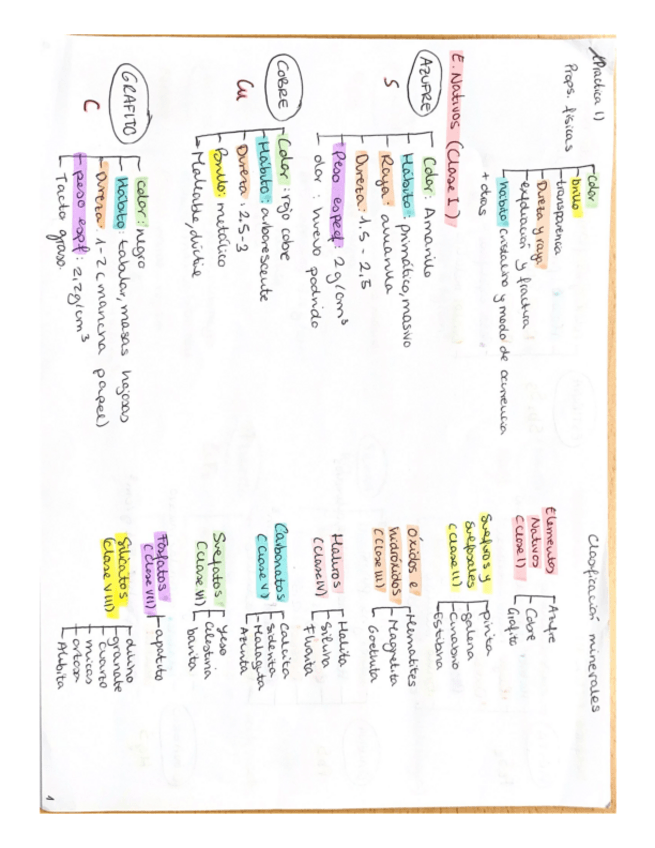 Práctica 1)
Props. físicas
color
brillo
transparencia
Dureza y raya
exfoliación y fractura
hábito cristalino y modo de ocurrencia
+ otras
E. Nativos (Clase I)
AZUFRE
S
Color: Amarillo
Hábito: prismático, masivo
Raya: amarilla
Dureza: 1.5 - 2,5
Peso especf: 2 g/cm³
olor: huevo podrido
COBRE
Cu
Color: rojo cobre
Hábito: arborescente
Dureza: 2.5-3
Brillo: metálico
Maleable, dúctil
GRAFITO
C
Color: negro
Hábito: tabular, masas hojosas
Dureza: 1-2 (mancha papel)
peso espf: 2,2g/cm³
Tacto graso.
Clasificación minerales
Elementos
Nativos
(Clase I)
Azufre
Cobre
Grafito
Sulfuros y
sulfosales
(Clase II)
pirita
galena
cinabrio
Estibina
Óxidos e
hidróxidos
(Clase III)
Hematites
Magnetita
Goethita
Haluros
(Clase IV)
Halita
Silvina
Fluorita
Carbonatos
(Clase V)
Calcita
siderita
Malaquita
Azurita
Sulfatos
(Clase VI)
yeso
Celestina
barita
Fosfatos
(Clase VII)
apatito
Silicatos
(Clase VIII)
olivino
granate
cuarzo
micas
ortosa
Albita
1